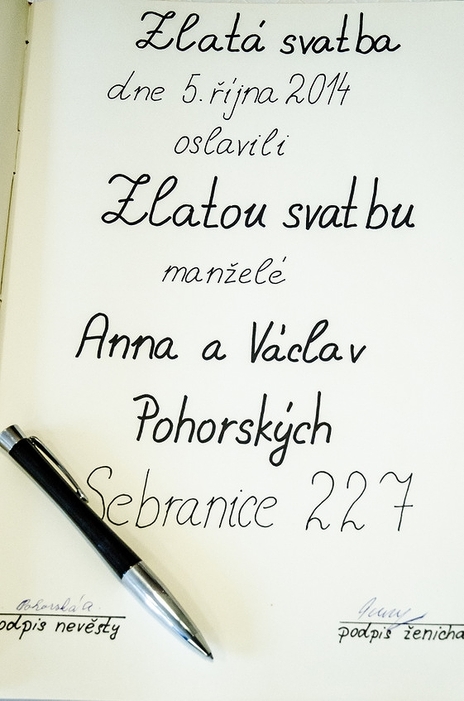 Zlatá svatba
dne 5. října 2014
oslavili
Zlatou svatbu
manželé
Anna a Václav
Pohorských
Sebranice 227
Pohorská A.
odpis nevěsty
podpis ženicha